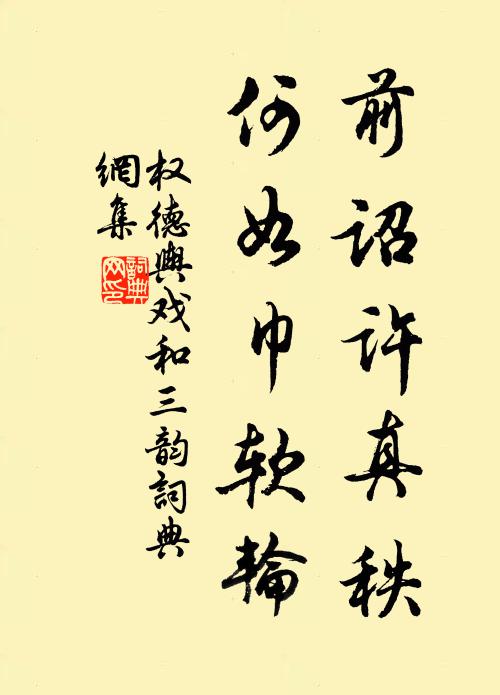 前诏许真秩
何如巾软轮
权德舆戏和三韵詞典
網集
詞典
网印